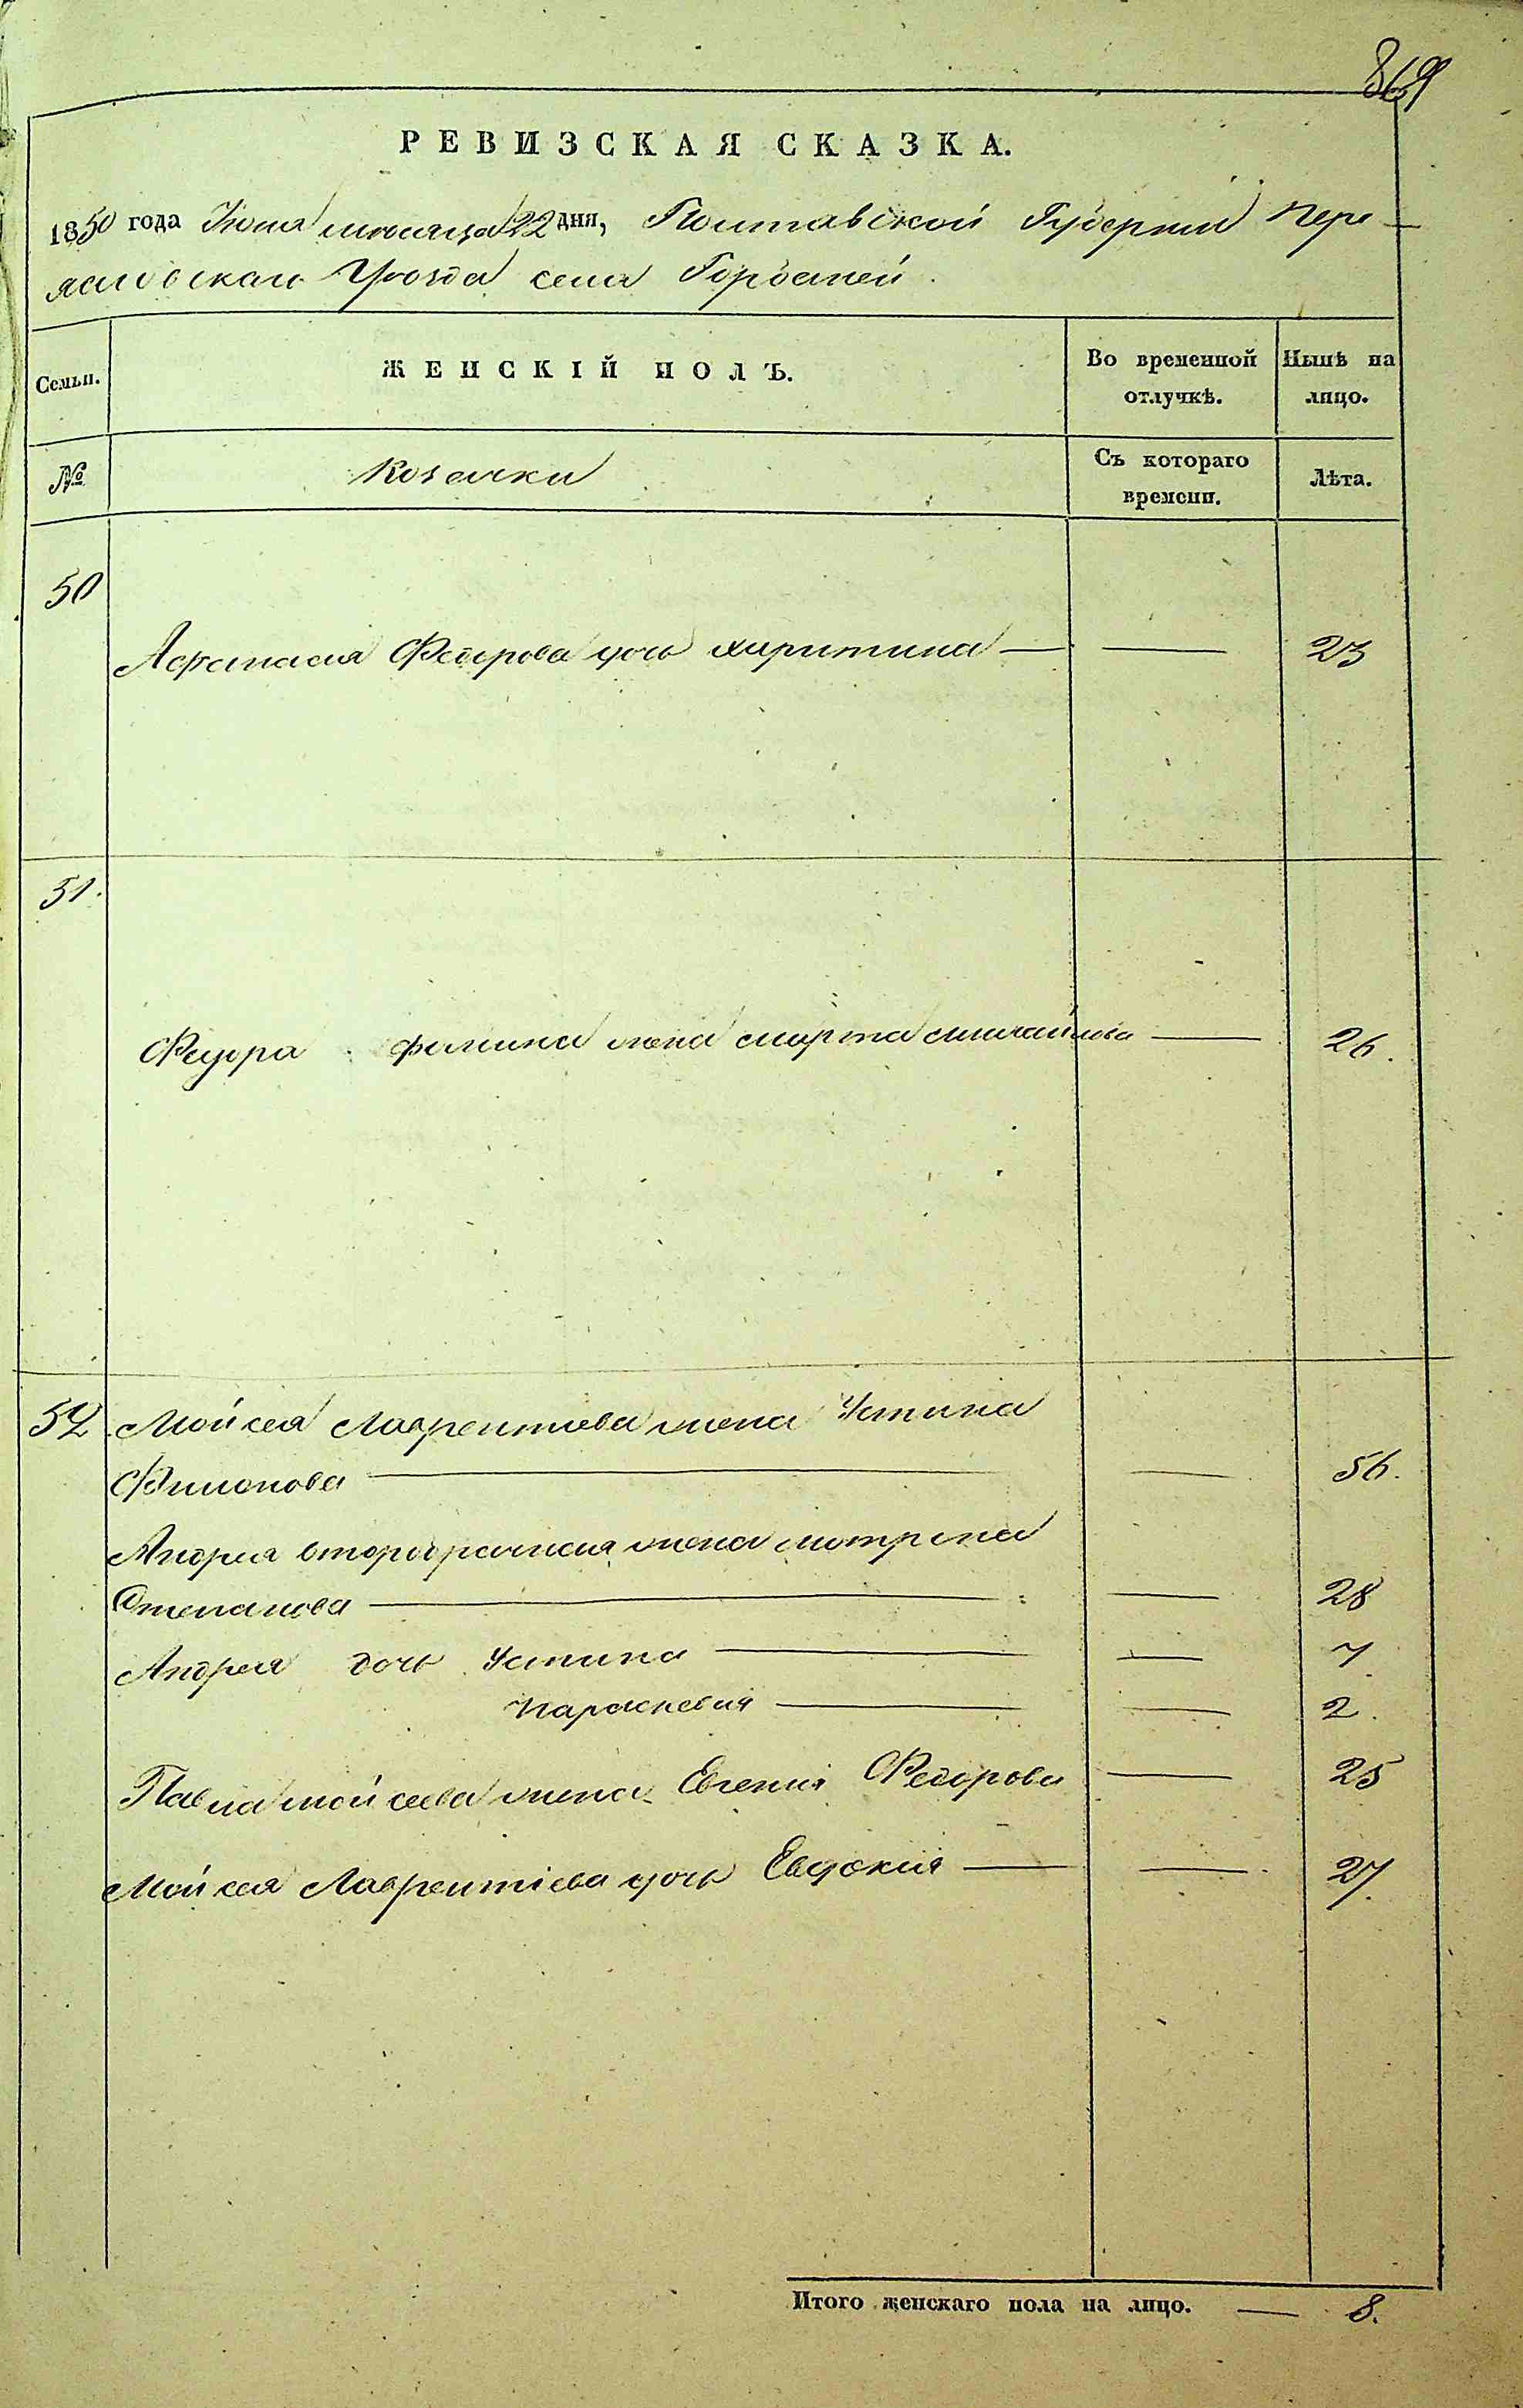 869
РЕВИЗСКАЯ СКАЗКА.
1850 года Июня месяца 22 дня, Полтавской Губернии Пере-
яславскаго Уезда села Горбаней.
Семьи. ЖЕНСКІЙ ПОЛЪ. Во временной отлучкѣ. Нынѣ на лицо.
№ Козачки Съ котораго времени. Лѣта.
50
Афанасия Федорова дочь харитина — — 23
51.
Федора фомина жена марта михайлова — 26.
52 Мойсея Лаврентиева жена Устина
Филионова — — 56.
Андрея второбрачная жена мотрона
Степанова — — 28
Андрея дочь Устина — — 7
параскевия — — 2.
Павла мойсеева жена Евгения Федорова — 25
Мойсея Лаврентіева дочь Евдокия — — 27.
Итого женскаго пола на лицо. — 8.